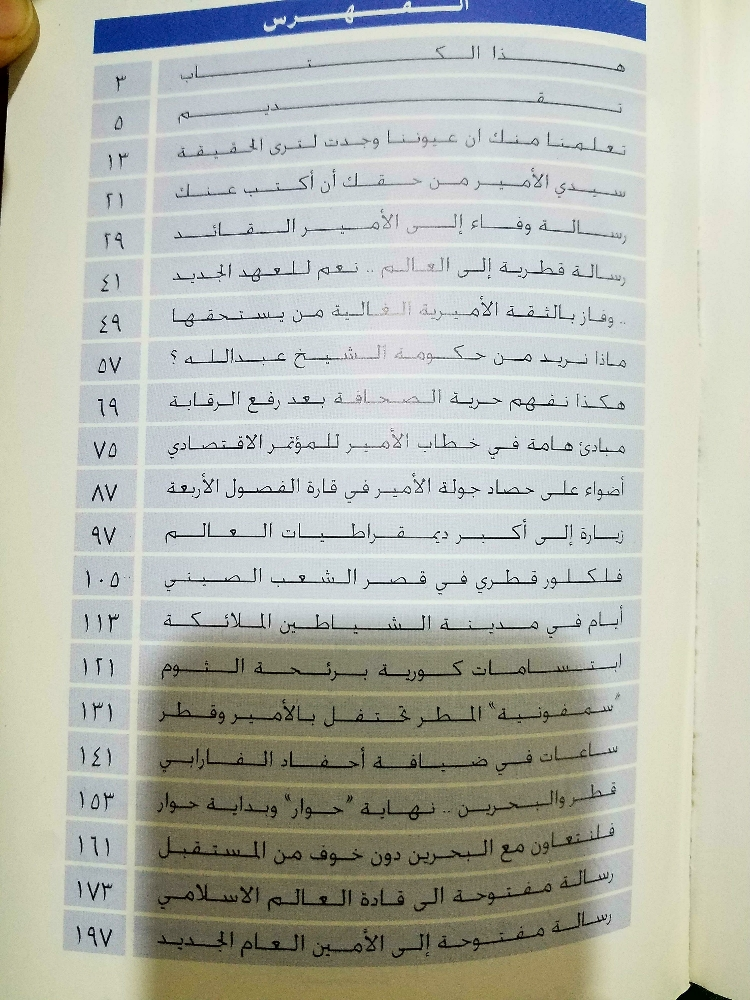 الفهرس
هذا الكتاب ٣
تقديم ٥
تعلمنا منك ان عيوننا وجدت لترى الحقيقة ١٣
سيدي الأمير من حقك أن أكتب عنك ٢١
رسالة وفاء إلى الأمير القائد ٢٩
رسالة قطرية إلى العالم .. نعم للعهد الجديد ٤١
.. وفاز بالثقة الأميرية الغالية من يستحقها ٤٩
ماذا نريد من حكومة الشيخ عبدالله ؟ ٥٧
هكذا نفهم حرية الصحافة بعد رفع الرقابة ٦٩
مبادئ هامة في خطاب الأمير للمؤتمر الاقتصادي ٧٥
أضواء على حصاد جولة الأمير في قارة الفصول الأربعة ٨٧
زيارة إلى أكبر ديمقراطيات العالم ٩٧
فلكلور قطري في قصر الشعب الصيني ١٠٥
أيام في مدينة الشياطين الملائكة ١١٣
ابتسامات كورية برئحة الثوم ١٢١
"سمفونية" المطر تحتفل بالأمير وقطر ١٣١
ساعات في ضيافة أحفاد الفارابي ١٤١
قطر والبحرين .. نهاية "حوار" وبداية حوار ١٥٣
فلنتعاون مع البحرين دون خوف من المستقبل ١٦١
رسالة مفتوحة الى قادة العالم الاسلامي ١٧٣
رسالة مفتوحة إلى الأمين العام الجديد ١٩٧